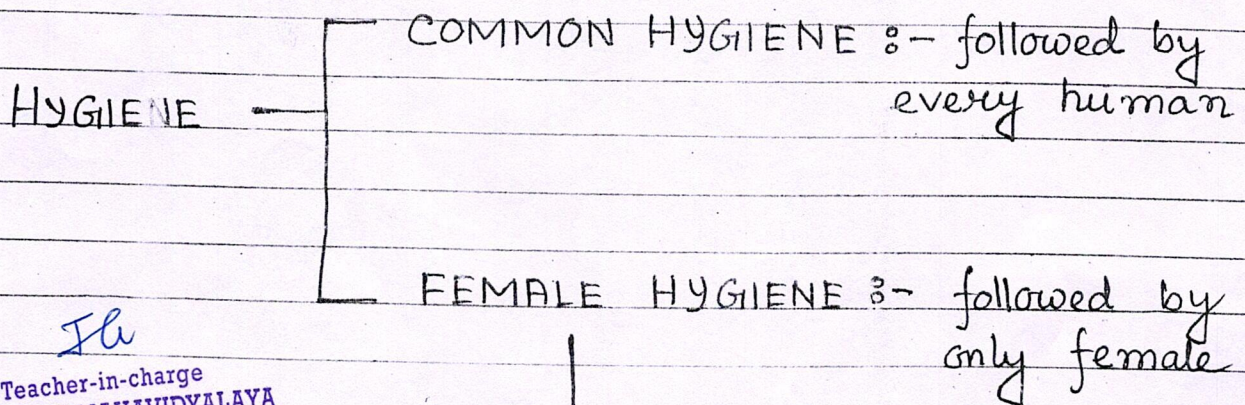 COMMON HYGIENE :- followed by
every human
HYGIENE
FEMALE HYGIENE :- followed by
only female
Teacher-in-charge